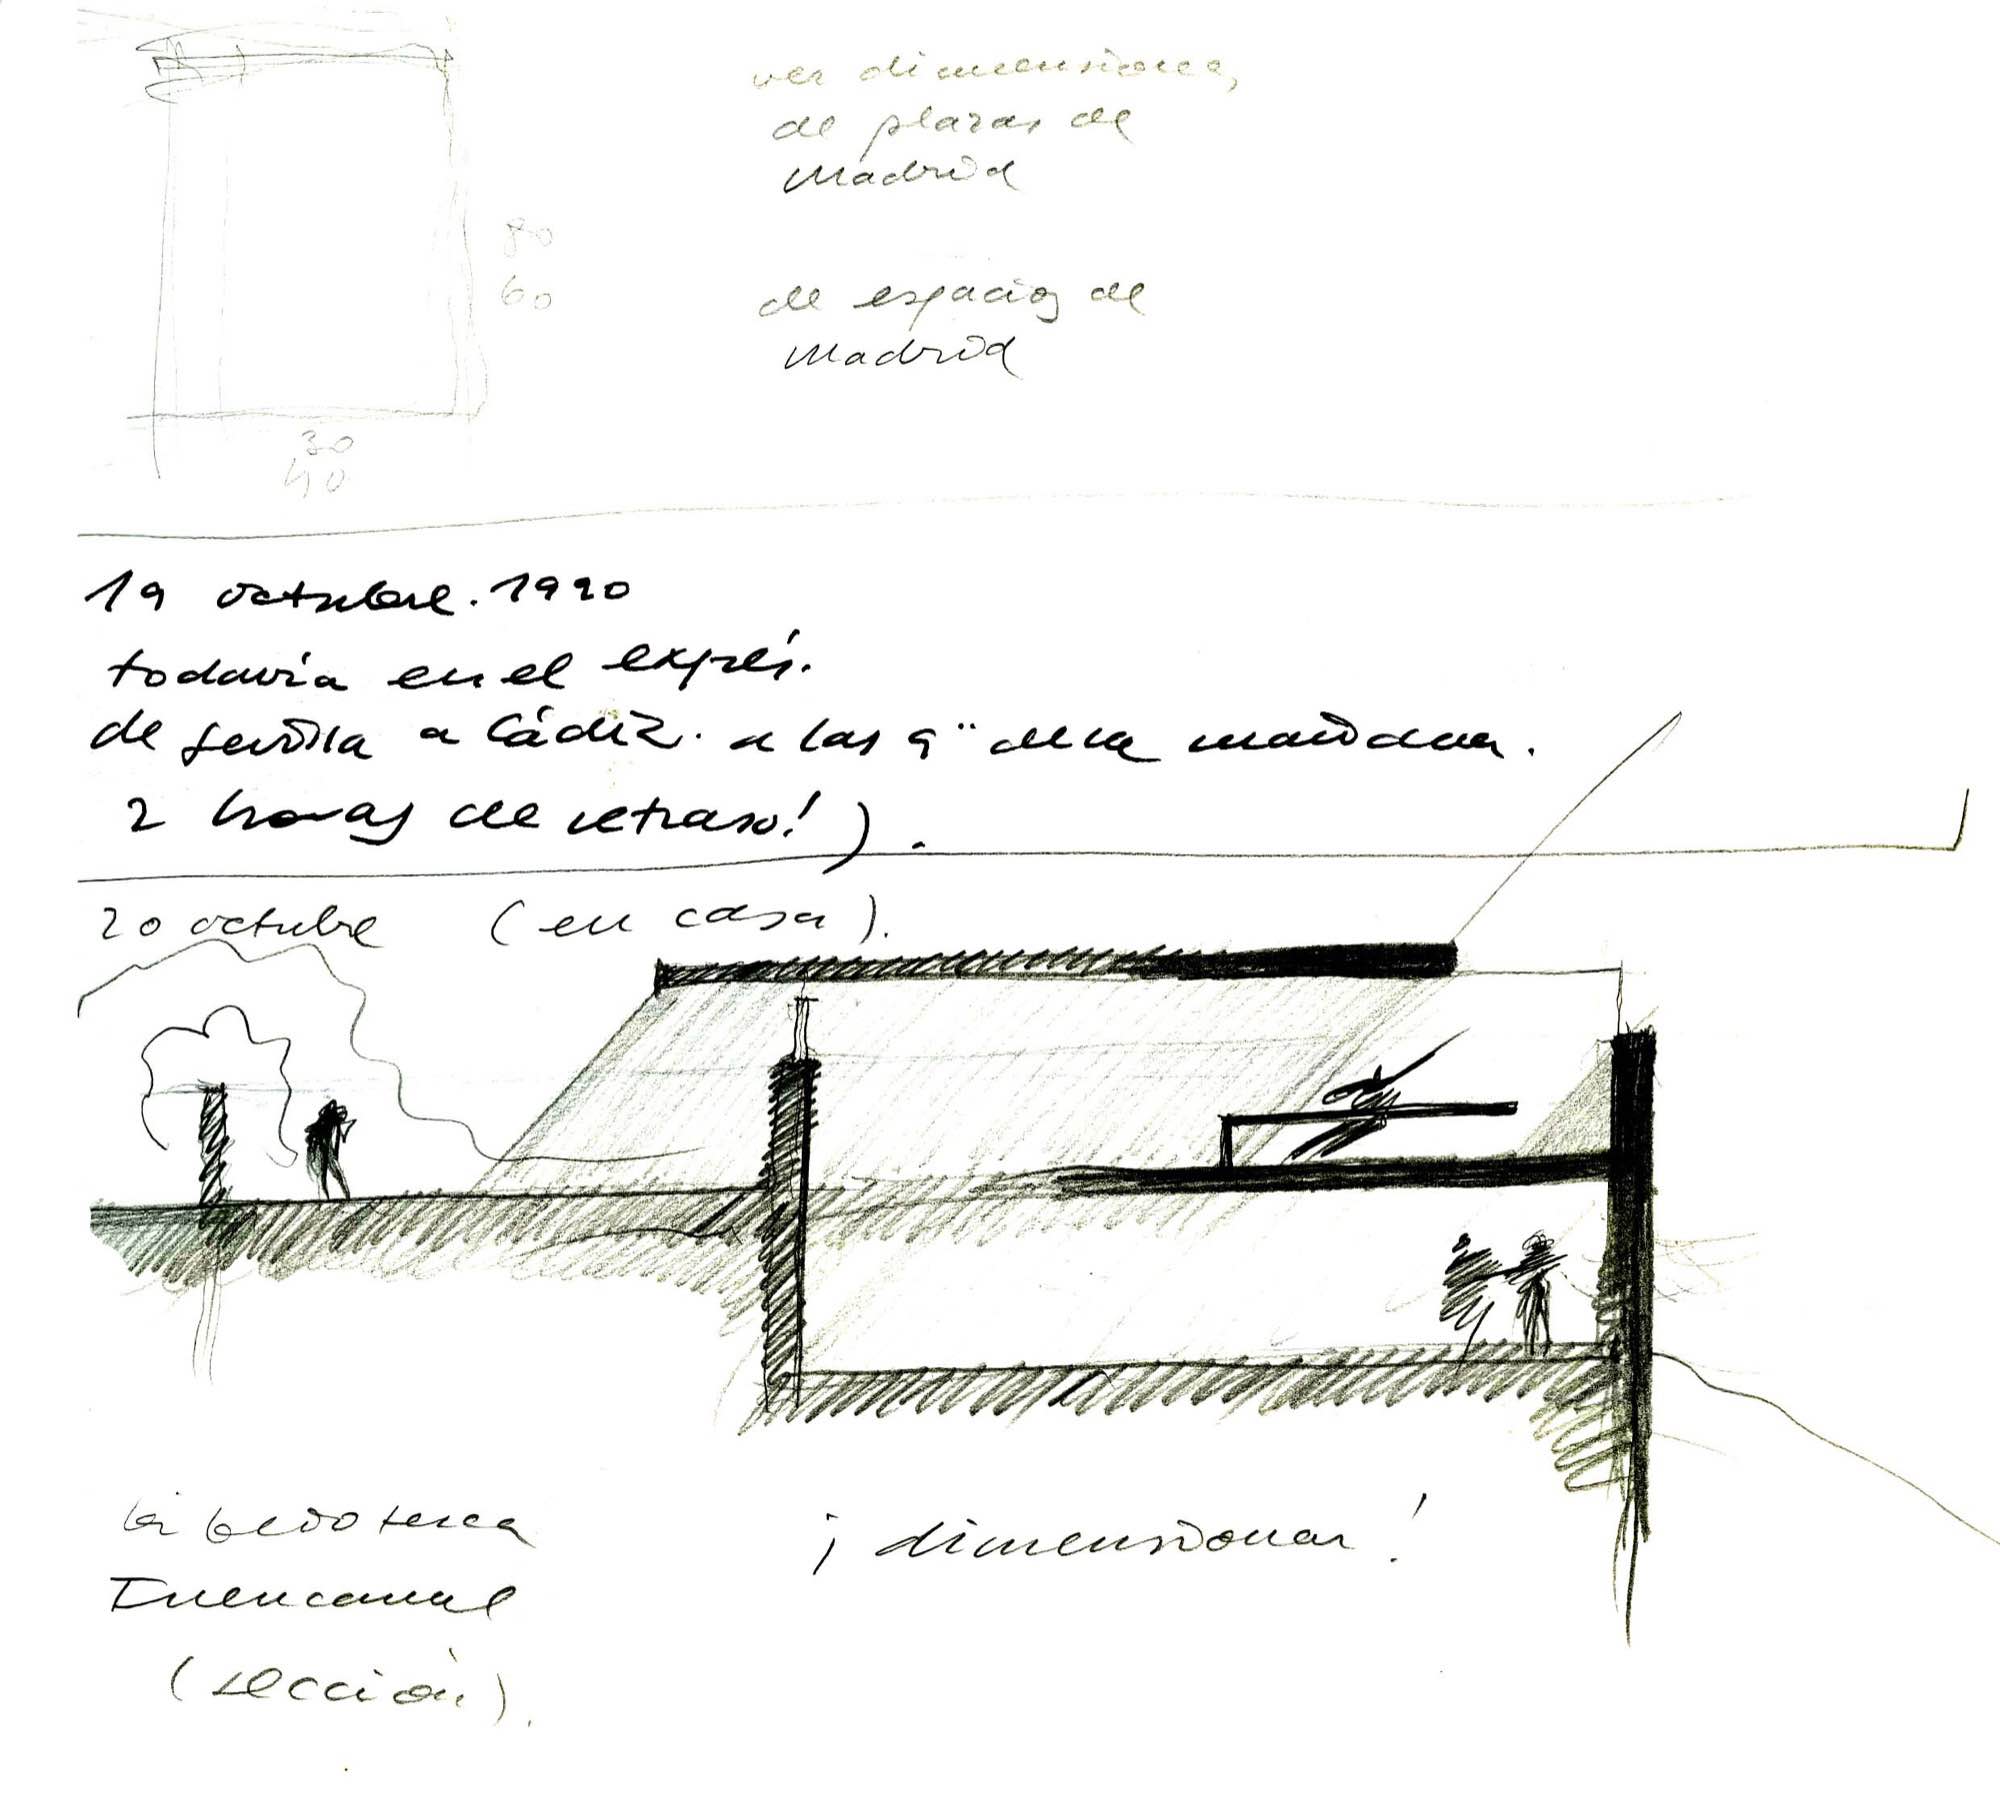 ver dimensiones
de plazas de
Madrid
80
60
de espacios de
Madrid
30
40
19 octubre. 1990
todavía en el exprés.
de Sevilla a Cádiz. a las 9¨ de la mañana.
2 horas de retraso! ).
20 octubre (en casa).
biblioteca
Fuencarral
(sección).
¡dimensionar!